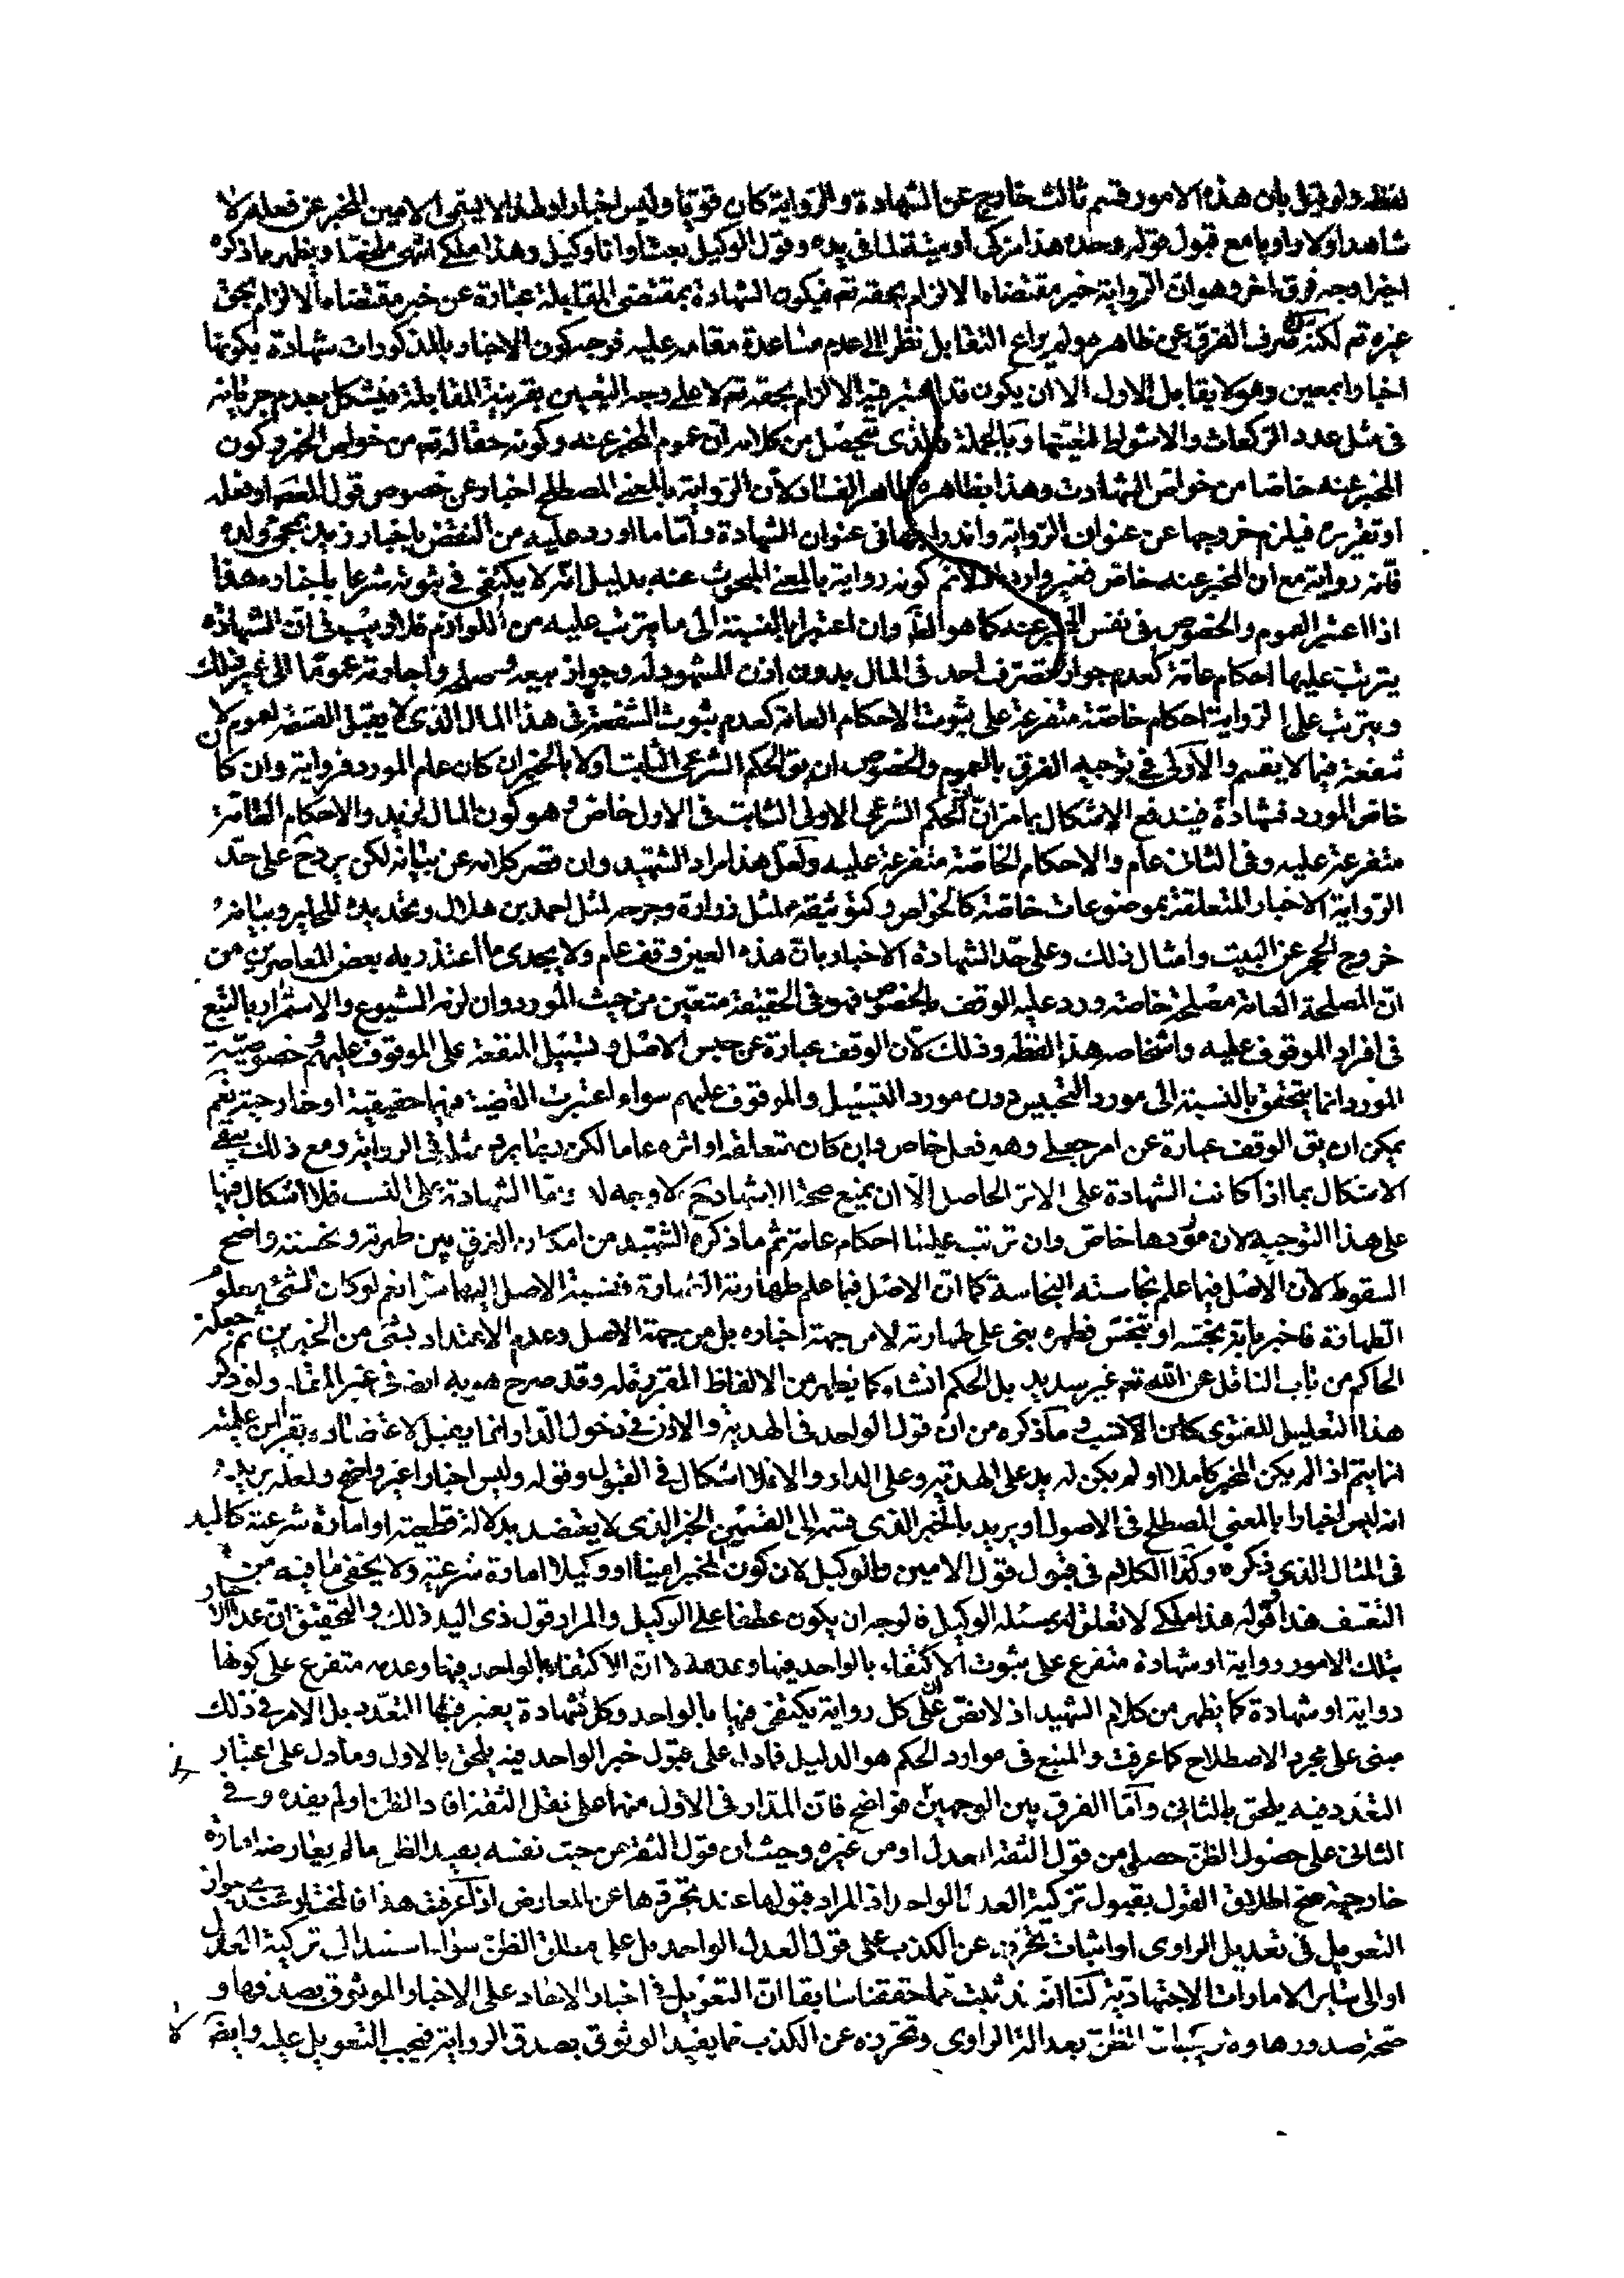 لفظه ولو قيل بان هذه الامور قسم ثالث خارج عن الشهادة والرواية كان قويا وليس اخبارا ولهذا لا يسمى الامين المخبر عن فعله لا
شاهدا ولا راويا مع قبول قوله وحده هذا مزكى او ميتة لما فى يده وقول الوكيل بعت او انا وكيل وهذا ملكى انتهى ملخصا ويظهر مما ذكره
اخيرا وجه فرق اخر وهو ان الرواية خبر مقتضاه الالزام بحقه تعم فيكون الشهادة بمقتضى المقابلة عبارة عن خبر مقتضاه الالزام بحق
غيره تعم لكنه صرف الفرق عن ظاهره ولم يراع التقابل نظرا الى عدم مساعدة مقامه عليه فوجه كون الاخبار بالمذكورات شهادة بكونها
اخبارا بمعين وهو لا يقابل الاول الا ان يكون قد اعتبر فيه الالزام بحقه تعم لا على وجه التعيين بقرينة المقابلة فيشكل بعدم جريانه
فى مثل عدد الركعات والاشواط لتعينها وبالجملة فالذى يتحصل من كلامه ان عموم المخبر عنه وكونه حقا له تعم من خواص الخبر وكون
المخبر عنه خاصا من خواص الشهادت وهذا بظاهره ظاهر الفساد لان الرواية بالمعنى المصطلح اخبار عن خصوص قول المعصوم او فعله
او تقريره فيلزم خروجها عن عنوان الرواية واندراجها فى عنوان الشهادة واما ما اورد عليه من النقض باخبار زيد بمجئ ولده
فانه رواية مع ان المخبر عنه خاص فغير وارد اذ لا نم كونه رواية بالمعنى المبحوث عنه بدليل انه لا يكتفى فى ثبوته شرعا باخباره هذا
اذا اعتبر العموم والخصوص فى نفس المخبر عنه كما هو الظ وان اعتبرا بالنسبة الى ما يترتب عليه من اللوازم فلا ريب فى ان الشهادة
يترتب عليها احكام عامة كعدم جواز تصرف احد فى المال بدون اذن المشهود له وجواز بيعه وصلحه واجارته عموما الى غير ذلك
ويترتب على الرواية احكام خاصة متفرعة على ثبوت الاحكام العامة كعدم ثبوت الشفعة فى هذا المال الذى لا يقبل القسمة لعموم لا
شفعة فيما لا يقسم والاولى فى توجيه الفرق بالعموم والخصوص ان يق الحكم الشرعى الثابت اولا بالخبر ان كان عام المورد فرواية وان كان
خاص المورد فشهادة فيندفع الاشكال بما مر لان الحكم الشرعى الاولى الثابت فى الاول خاص وهو كون المال لزيد والاحكام العامة
متفرعة عليه وفى الثانى عام والاحكام الخاصة متفرعة عليه ولعل هذا مراد الشهيد وان قصر كلامه عن بيانه لكن يرد ح على حد
الرواية الاخبار المتعلقة بموضوعات خاصة كالخواص وكتوثيقه لمثل زرارة وجرحه لمثل احمد بن هلال وتحديده للحاير وبيانه
خروج الحجر عن البيت وامثال ذلك وعلى حد الشهادة الاخبار بان هذه العين وقف عام ولا يجدى ما اعتذر به بعض المعاصرين من
ان المصلحة العامة مصلحة خاصة ورد عليه الوقف بالخصوص فهو فى الحقيقة متعين من حيث المورد وان لزمه الشيوع والاستمرار بالتبع
فى افراد الموقوف عليه واشخاصه هذا لفظه وذلك لان الوقف عبارة عن حبس الاصل وتسبيل المنفعة على الموقوف عليهم وخصوصية
المورد انما يتحقق بالنسبة الى مورد التحبيس دون مورد التسبيل والموقوف عليهم سواء اعتبرت القضية فيها حقيقية او خارجية نعم
يمكن ان يق الوقف عبارة عن امر جعلى وهو فعل خاص وان كان متعلقه او اثره عاما لكن ربما يرد مثله فى الرواية ومع ذلك يبقى
الاشكال بما اذا كانت الشهادة على الاثر الحاصل الا ان يمنع صحة الاشهاد ح ولا وجه له واما الشهادة على النسب فلا اشكال فيها
على هذا التوجيه لان مؤدها خاص وان ترتب عليها احكام عامة ثم ما ذكره الشهيد من امكان الفرق بين طهرته ونجسته واضح
السقوط لان الاصل فيما علم نجاسته النجاسة كما ان الاصل فيما علم طهارته الطهارة فنسبة الاصل اليهما سواء نعم لو كان الشئ معلوم
الطهارة فاخبر بانه نجسه او تنجس فطهره بنى على طهارته لا من جهة اخباره بل من جهة الاصل وعدم الاعتداد بشئ من الخبرين ثم جعله
الحاكم من باب الناقل عن الله تعم غير سديد بل الحكم انشاء كما يظهر من الالفاظ المقررة له وقد صرح هو به ايضا فى غير المقام ولو ذكر
هذا التعليل للفتوى كان الانسب وما ذكره من ان قول الواحد فى الهدية والاذن فى دخول الدار انما يقبل لاعتضاده بقراين علمية
انما يتم اذا لم يكن المخبر كاملا او لم يكن له يد على الهدية وعلى الدار والا فلا اشكال فى القبول وقوله وليس اخبارا غير واضح ولعله يريد
انه ليس اخبارا بالمعنى المصطلح فى الاصول او يريد بالخبر الذى قسمه الى القسمين الخبر الذى لا يعتضد بدلالة قطعية او امارة شرعية كاليد
فى المثال الذى ذكره وكذا الكلام فى قبول قول الامين والوكيل لان كون المخبر امينا او وكيلا امارة شرعية ولا يخفى ما فيه من
التعسف هذا وقوله هذا ملكى لا تعلق له بمسئلة الوكيل فالوجه ان يكون عطفا على الوكيل والمراد قول ذى اليد ذلك والتحقيق ان عد
تلك الامور رواية او شهادة متفرع على ثبوت الاكتفاء بالواحد فيها وعدمه لا ان الاكتفاء بالواحد فيها وعدمه متفرع على كونها
رواية او شهادة كما يظهر من كلام الشهيد اذ لا نص على ان كل رواية يكتفى فيها بالواحد وكل شهادة يعتبر فيها التعدد بل الامر فى ذلك
مبنى على مجرد الاصطلاح كما عرفت والمتبع فى موارد الحكم هو الدليل فما دل على قبول خبر الواحد فيه يلحق بالاول وما دل على اعتبار
التعدد فيه يلحق بالثانى واما الفرق بين الوجهين فواضح فان المدار فى الاول منهما على نقل الثقة افاد الظن او لم يفده وفى
الثانى على حصول الظن حصل من قول الثقة العدل او من غيره وحيث ان قول الثقة من حيث نفسه يفيد الظن ما لم يعارضه امارة
خارجية صح اطلاق القول بقبول تزكية العدل الواحد اذ المراد قبولها عند تجردها عن المعارض اذا عرفت هذا فالمختار عندى جواز
التعويل فى تعديل الراوى او اثبات تحرزه عن الكذب على قول العدل الواحد بل على مطلق الظن سواء استند الى تزكية العدل
او الى ساير الامارات الاجتهادية لنا انه قد ثبت مما حققنا سابقا ان التعويل فى اخبار الاحاد على الاخبار الموثوق بصدقها و
صحة صدورها ولا ريب ان الظن بعدالة الراوى وتحرزه عن الكذب مما يفيد الوثوق بصدق الرواية فيجب التعويل عليه وايضا